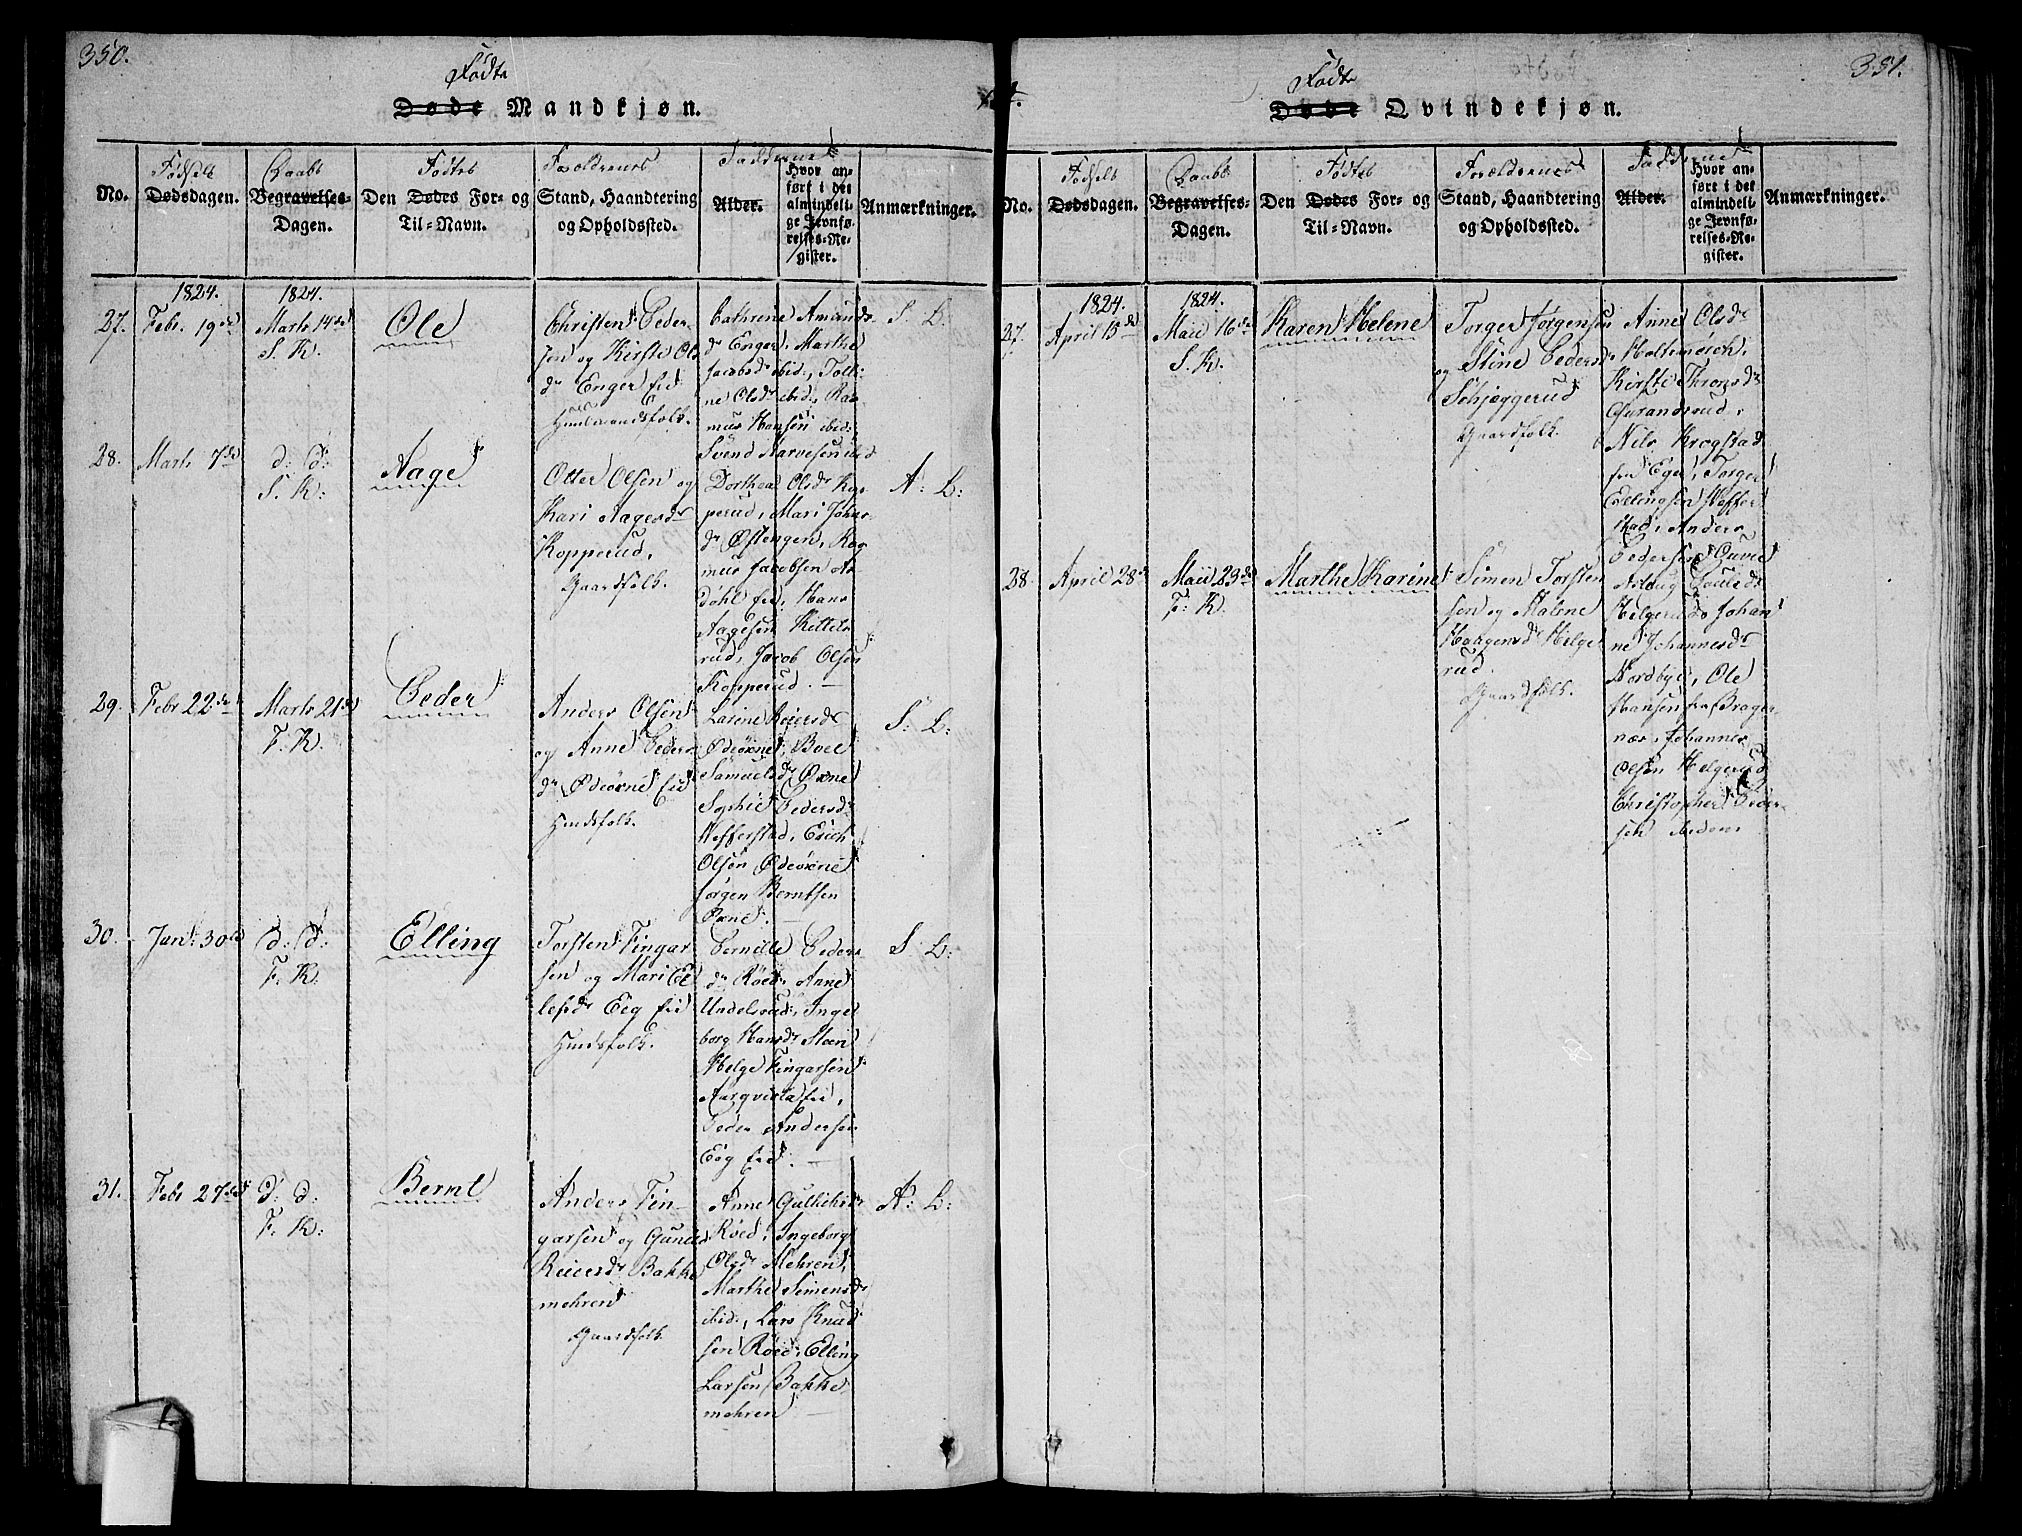 350.
Fødte
Døde Mandkjøn.
No.
Fødsels
Dødsdagen.
Daabs
Begravelses-
Dagen.
Fødtes
Den Dødes For- og
Til-Navn.
Forældrenes
Stand, Haandtering
og Opholdssted.
Fadderne
Alder.
Hvor an-
ført i det
almindeli-
ge Jevnfø-
relses-Re-
gister.
Anmærkninger.
1824.
1824.
27.
Febr 19de
Marts 14de
S. K.
Ole
Christen Peder-
sen og Kirsti Ols
dr Enger Eid
Huusmandsfolk.
Cathrine Amunds-
dr Enger, Marthe
Jacobsdr ibid, Tolli
ne Olsdr ibid, Ras
mus Hansen ibid,
Svend Narvesen ibid
S. L.
28.
Marts 7de
d: d:
S. K.
Aage
Otter Olsen og
Kari Aagesdr
Kopperud,
Gaardfolk.
Dorthea Olsdr Kop
perud, Mari Johns-
dr Østengen, Ras
mus Jacobsen As
dahl Eid, Hans
Aagesen Kittels
rud, Jacob Olsen
Kopperud. —
A: L:
29.
Febr 22de
Marts 21de
F: K.
Peder
Anders Olsen
og Anne Peders
dr Ødeørne Eid
Huusfolk.
Larine Reiersdr
Ødeørne, Boel
Samuelsdr Ørne
Sophie Pedersdr
Hefferstad, Erich
Olsen Ødeørne
Jørgen Berntsen
Ørne. —
S: L:
30.
Jan: 30te
d: d:
F: K.
Elling
Torsten Fingar
sen og Mari El
lefsdr Eeg Eid
Huusfolk.
Pernille Peders
dr Röed, Anne
Undelsrud, Inge
borg Hansdr Steen
Helge Fingarsen
Aarqvisla Eid,
Peder Andersen
Eeg Eid. —
S. L:
31.
Febr 27de
d: d:
F. K:
Bernt
Anders Fin-
garsen og Guneld
Reiersdr Bakke
mehren
Gaardfolk
Anne Gulliksdr
Röed, Ingeborg
Olsdr Mehren,
Marthe Simensdr
ibid:, Lars Knud
sen Röed, Elling
Larsen Bakke
mehren —
A: L:
351.
Fødte
Døde Qvindekjøn.
No.
Fødsels
Dødsdagen.
Daabs
Begravelses-
Dagen.
Fødtes
Den Dødes For- og
Til-Navn.
Forældrenes
Stand, Haandtering
og Opholdssted.
Fadderne
Alder.
Hvor an-
ført i det
almindeli-
ge Jevnfø-
relses-Re-
gister.
Anmærkninger.
1824.
1824.
27.
April 15de
Maii 16de
S. K.
Karen Helene
Torger Jørgensen
og Stine Pedersdr
Schjeggerud
Gaardfolk.
Anne Olsdr
Holtemörch,
Kirsti Thronsdr
Gurandsrud,
Nils Krogstad
fra Eger, Torger
Ellingsen Heffer
stad, Anders
Pedersen Qværn
28.
April 28de
Maii 23de
F: K.
Marthe Karine
Simen Torsten
sen og Malene
Haagensdr Helge
rud.
Gaardfolk.
Aslaug Povelsdr
Helgerud, Johan
ne Johannesdr
Nordbye, Ole
Hansen fra Brager
næs, Johannes
Olsen Helgerud
Christopher Peder
sen